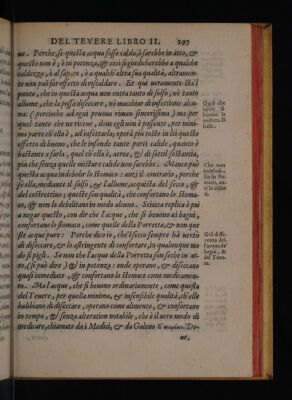 DEL TEVERE LIBRO II. 197
ne. Perche, se questa acqua fusse calda, ò sarebbe in atto, &
questo non è; ò in potenza, & così si giudicherebbe a qualche
caldezza, ò al sapore, ò a qualch'altra sua qualità, altramen-
te non può far effetto di riscaldare. Et quì veramente stà il
punto, che in questa acqua non entra tanto di solfo, nè tanto
allume, che la possa disseccare, nè macchiar d'infettione alcu-
na: ( percioche ad ogni pruova riman sincerissima ) ma per
quel tanto che ne riceve, dove egli non è possente, per mini-
ma parte ch'ella è, ad infettarla; operà più tosto in lei questo
effetto di buono, che le infonde tante parti calide, quanto è
bastante a farla, quel ch'ella è, atta, & di sottil sostantia,
più che senza quelle misture calide non sarebbe. Ma
acqua indebolir lo stomaco: anzi il contrario, perche
se ella, mediante il solfo, & l'allume, acquista del secco, &
del costrettivo; queste son qualità, che confortano lo stoma-
co, & non lo debilitano in modo alcuno. Sciocca replica è poi
a negar questo, con dir che l'acque, che si beveno ai bagni,
confortano lo stomaco, come quelle della Porretta, & non que
ste acque pure: Perche dico io, che'l secco sempre hà virtù
di disseccare, & lo astringente di confortare, in qualunque mo
do si pigli. Se non che l'acque della Porretta son secche in at-
to, (si può dire ) & in potenza: onde operano, & disseccano
quasi immediate, & confortano lo stomaco come medicamen-
to. Ma l'acque, che si beveno ordinariamente, come questa
del Tevere, per quella minima, & insensibile qualità, ch'elle
habbiano di disseccare, operano come alimento, & confortano
in tempo, & senza alteration notabile, che è il vero modo di
medicare, chiamato da i Medici, & da Galeno Do-
ve,
Che non
indeboli-
Gran diffe-
renza del-
l'acque de'
bagni, &
del Teve-
re.